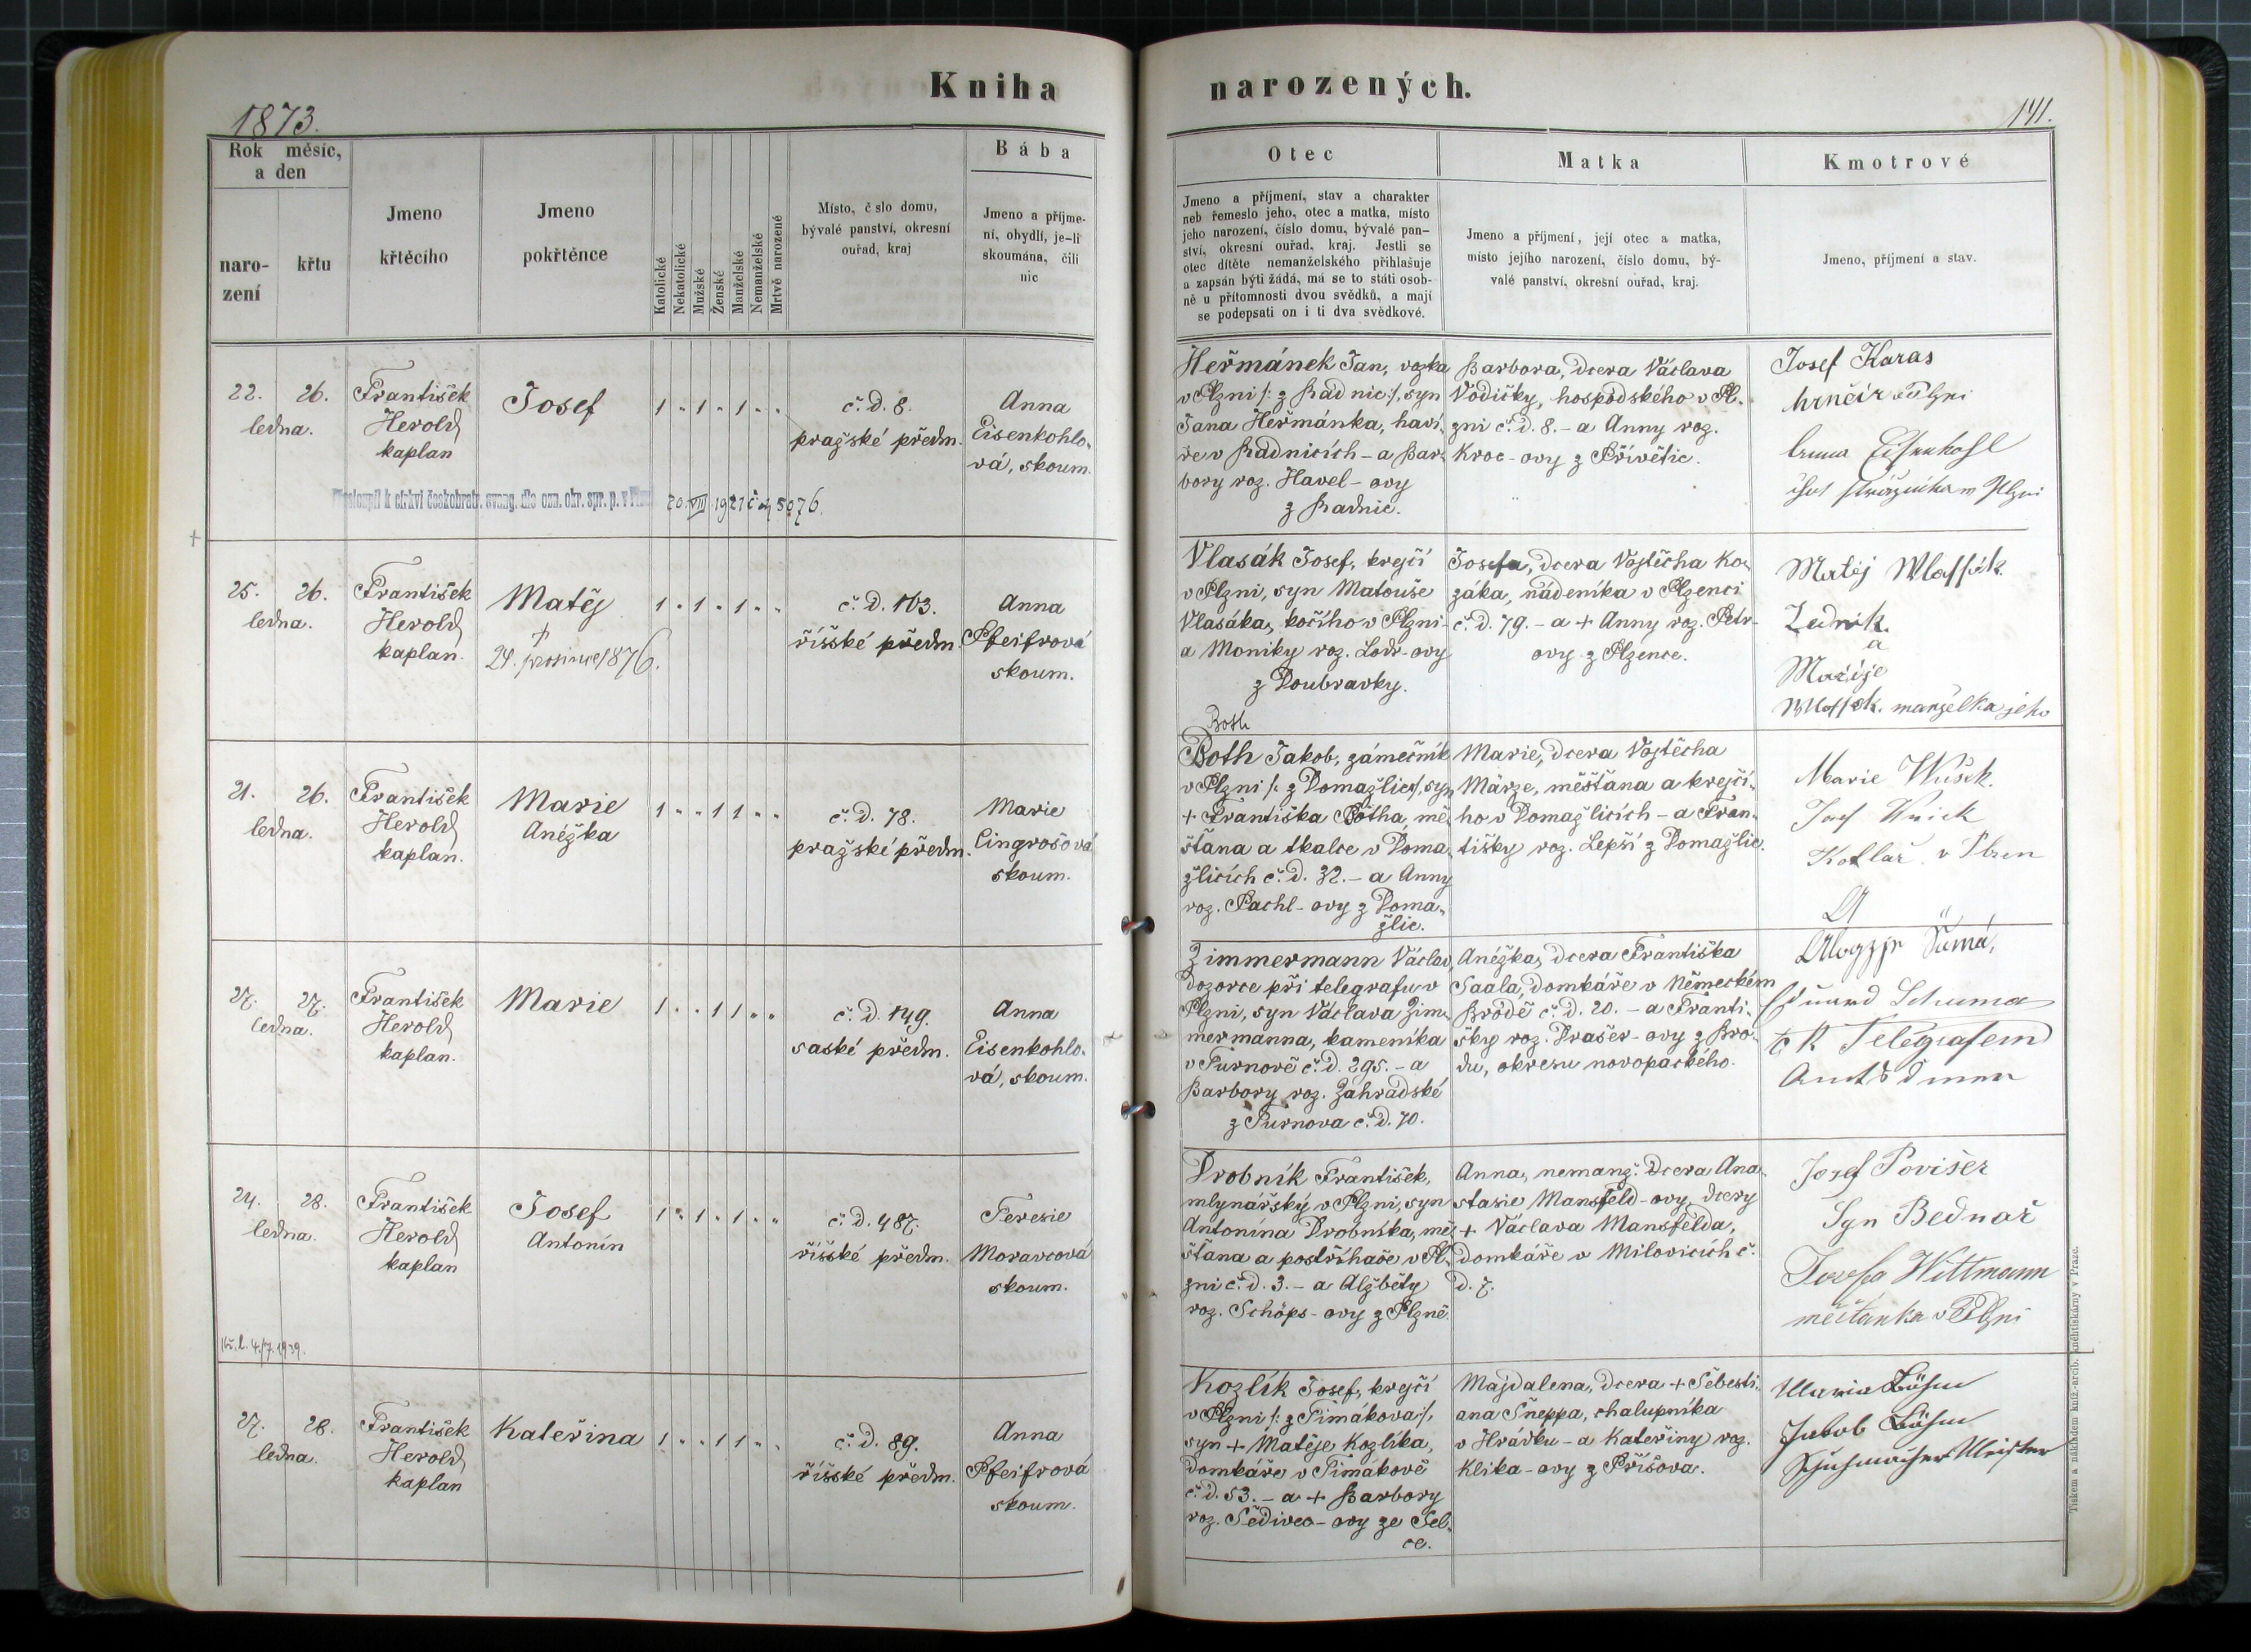 Kniha
1873.
Rok měsíc,
a den
naro-
zení
křtu
Jmeno
křtěcího
Jmeno
pokřtěnce
Katolické
Nekatolické
Mužské
Ženské
Manželské
Nemanželské
Mrtvě narozené
Místo, č slo domu,
bývalé panství, okresní
ouřad, kraj
Bába
Jmeno a příjme-
ní, obydlí, je-li
skoumána, čili
nic
22. 26.
ledna.
František
Herold
kaplan
Josef
1 " 1 " 1 " "
č. d. 8.
pražské předm.
Anna
Eisenkohlo-
vá, skoum.
Přestoupil k církvi českobratr. evang. dle ozn. okr. spr. p. v 20. VIII. 1921 č. 45076.
25. 26.
ledna.
František
Herold
kaplan.
Matěj
†
24. prosince 1876.
1 " 1 " 1 " "
č. d. 163.
říšské předm.
Anna
Pfeifrová
skoum.
21. 26.
ledna.
František
Herold
kaplan.
Marie
Anéžka
1 " " 1 1 " "
č. d. 78.
pražské předm.
Marie
Cingrošová
skoum.
27. 27.
ledna.
František
Herold
kaplan.
Marie
1 " " 1 1 " "
č. d. 149.
saské předm.
Anna
Eisenkohlo-
vá, skoum.
24. 28.
ledna.
František
Herold
kaplan
Josef
Antonín
1 " 1 " 1 " "
č. d. 487.
říšské předm.
Teresie
Moravcová
skoum.
4./7. 1939.
27. 28.
ledna.
František
Herold
kaplan
Kateřina
1 " " 1 1 " "
č. d. 89.
říšské předm.
Anna
Pfeifrová
skoum.
narozených.
141.
Otec
Jmeno a příjmení, stav a charakter
neb řemeslo jeho, otec a matka, místo
jeho narození, číslo domu, bývalé pan-
ství, okresní ouřad, kraj. Jestli se
otec dítěte nemanželského přihlašuje
a zapsán býti žádá, má se to státi osob-
ně u přítomnosti dvou svědků, a mají
se podepsati on i ti dva svědkové.
Matka
Jmeno a příjmení, její otec a matka,
místo jejího narození, číslo domu, bý-
valé panství, okresní ouřad, kraj.
Kmotrové
Jmeno, příjmení a stav.
Heřmánek Jan, vozka
v Plzni /: z Radnic :/, syn
Jana Heřmánka, haví-
ře v Radnicích - a Bar-
bory roz. Havel-ovy
z Radnic.
Barbora, dcera Václava
Vodičky, hospodského v Pl-
zni č. d. 8. - a Anny roz.
Kroc-ovy z Přívětic.
Josef Karas
hrnčíř v Plzni
Anna Eisenkohl
Vlasák Josef, krejčí
v Plzni, syn Matouše
Vlasáka, kočího v Plzni -
a Moniky roz. Lodr-ovy
z Doubravky.
Josefa, dcera Vojtěcha Ko-
záka, nádeníka v Plzenci
č. d. 79. - a + Anny roz. Petr-
ovy z Plzence.
Matěj Wlassák
Zedník.
a
Marije
Wlassak. manželka jeho
Both
Both Jakob, zámečník
v Plzni /: z Domažlic :/, syn
+ Františka Botha, mě-
šťana a tkalce v Doma-
žlicích č. d. 32. - a Anny
roz. Pachl-ovy z Doma-
žlic.
Marie, dcera Vojtěcha
Märze, měšťana a krejčí-
ho v Domažlicích - a Fran-
tišky roz. Lepší z Domažlic.
Marie Wušek.
Kotlař v
Zimmermann Václav,
dozorce při telegrafu v
Plzni, syn Václava Zim-
mermanna, kameníka
v Turnově č. d. 295. - a
Barbory roz. Zahradské
z Turnova č. d. 70.
Anéžka, dcera Františka
Saala, domkáře v Německém
Brodě č. d. 20. - a Franti-
šky roz. Drašer-ovy z Bro-
du, okresu novopackého.
Eduard Schuma
k k Telegrafem
Amtsdiener
Drobník František,
mlynářský v Plzni, syn
Antonína Drobníka, mě-
šťana a postřihače v Pl-
zni č. d. 3. - a Alžběty
roz. Schöps-ovy z Plzně.
Anna, nemanž. dcera Ana-
stasie Mansfeld-ovy, dcery
+ Václava Mansfelda,
domkáře v Milovicích č.
d. 7.
Josef Povišer
Syn Bednař
Josefa Wittmann
měštanka v Plzni
Kozlík Josef, krejčí
v Plzni /: z Timákova :/,
syn + Matěje Kozlíka,
domkáře v Timákově
č. d. 53. - a + Barbory
roz. Šedivec-ovy ze Sel-
ce.
Majdalena, dcera + Šebesti-
ana Šneppa, chalupníka
v Hrádku - a Kateřiny roz.
Klika-ovy z Příšova.
Maria Böhm
Jakob Böhm
Schuhmacher Meister
Tiskem a nákladem kníž.-arcib. knihtiskárny v Praze.